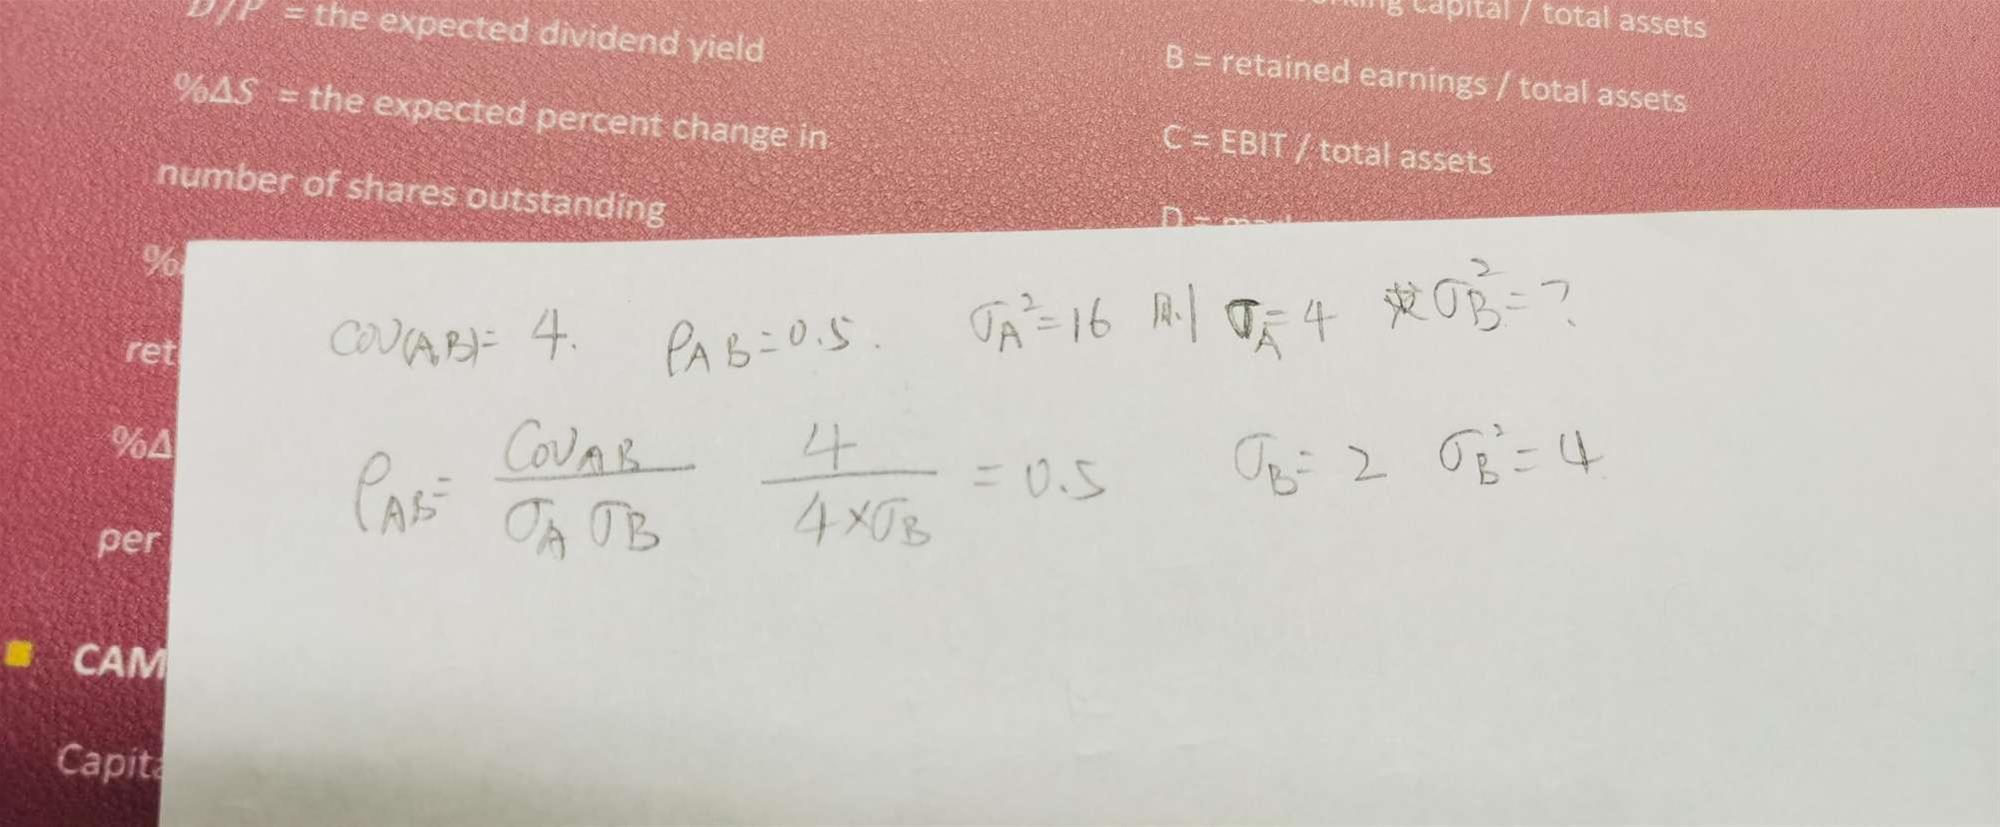 D/P = the expected dividend yield
%ΔS = the expected percent change in
number of shares outstanding
%
ret
%Δ
per
CAM
Capit
capital / total assets
B = retained earnings / total assets
C = EBIT / total assets
D =
COV(A,B)= 4. ρAB=0.5. σA²=16 则 σA=4 求σB²=?
ρAB= COVAB / σA σB 4 / 4×σB = 0.5 σB= 2 σB²= 4